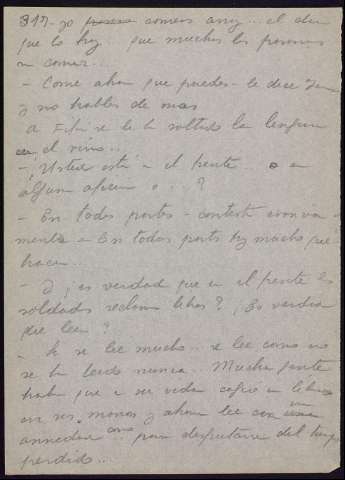 317.- yo comer muy... el dia
que lo hay... que muchas las pasamos
sin comer...
- Come ahora que puedes - le dice
y no hables de mas
A Fifi se le ha soltado la lengua
el vino...
- ¿Usted está en el frente o en
alguna oficina o...?
- En todas partes - contesta
mente - En todas partes hay mucho que
hacer...
- ¿Y es verdad que en el frente los
soldados reclaman libros? ¿Es verdad
que leen?
- Si se lee mucho... se lee como no
se ha leido nunca... Mucha gente
habra que en su vida cogió un libro
en sus manos y ahora lee con
ansiedad como para desquitarse del tiempo
perdido...